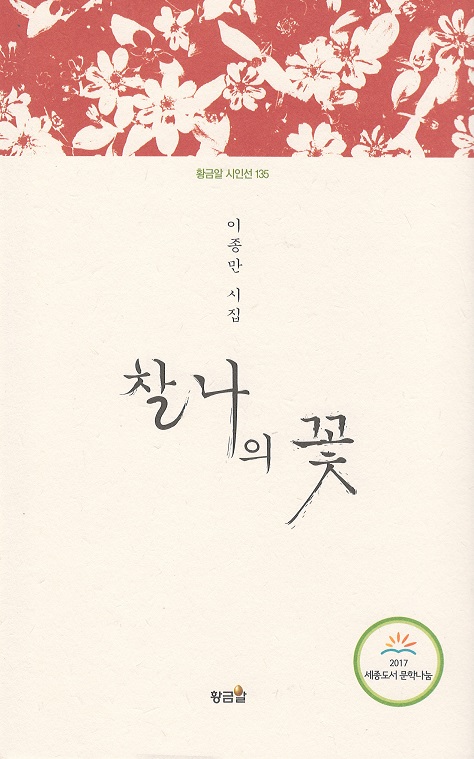 황금알 시인선 135
이종만 시집
찰나의 꽃
2017
세종도서 문학나눔
황금알